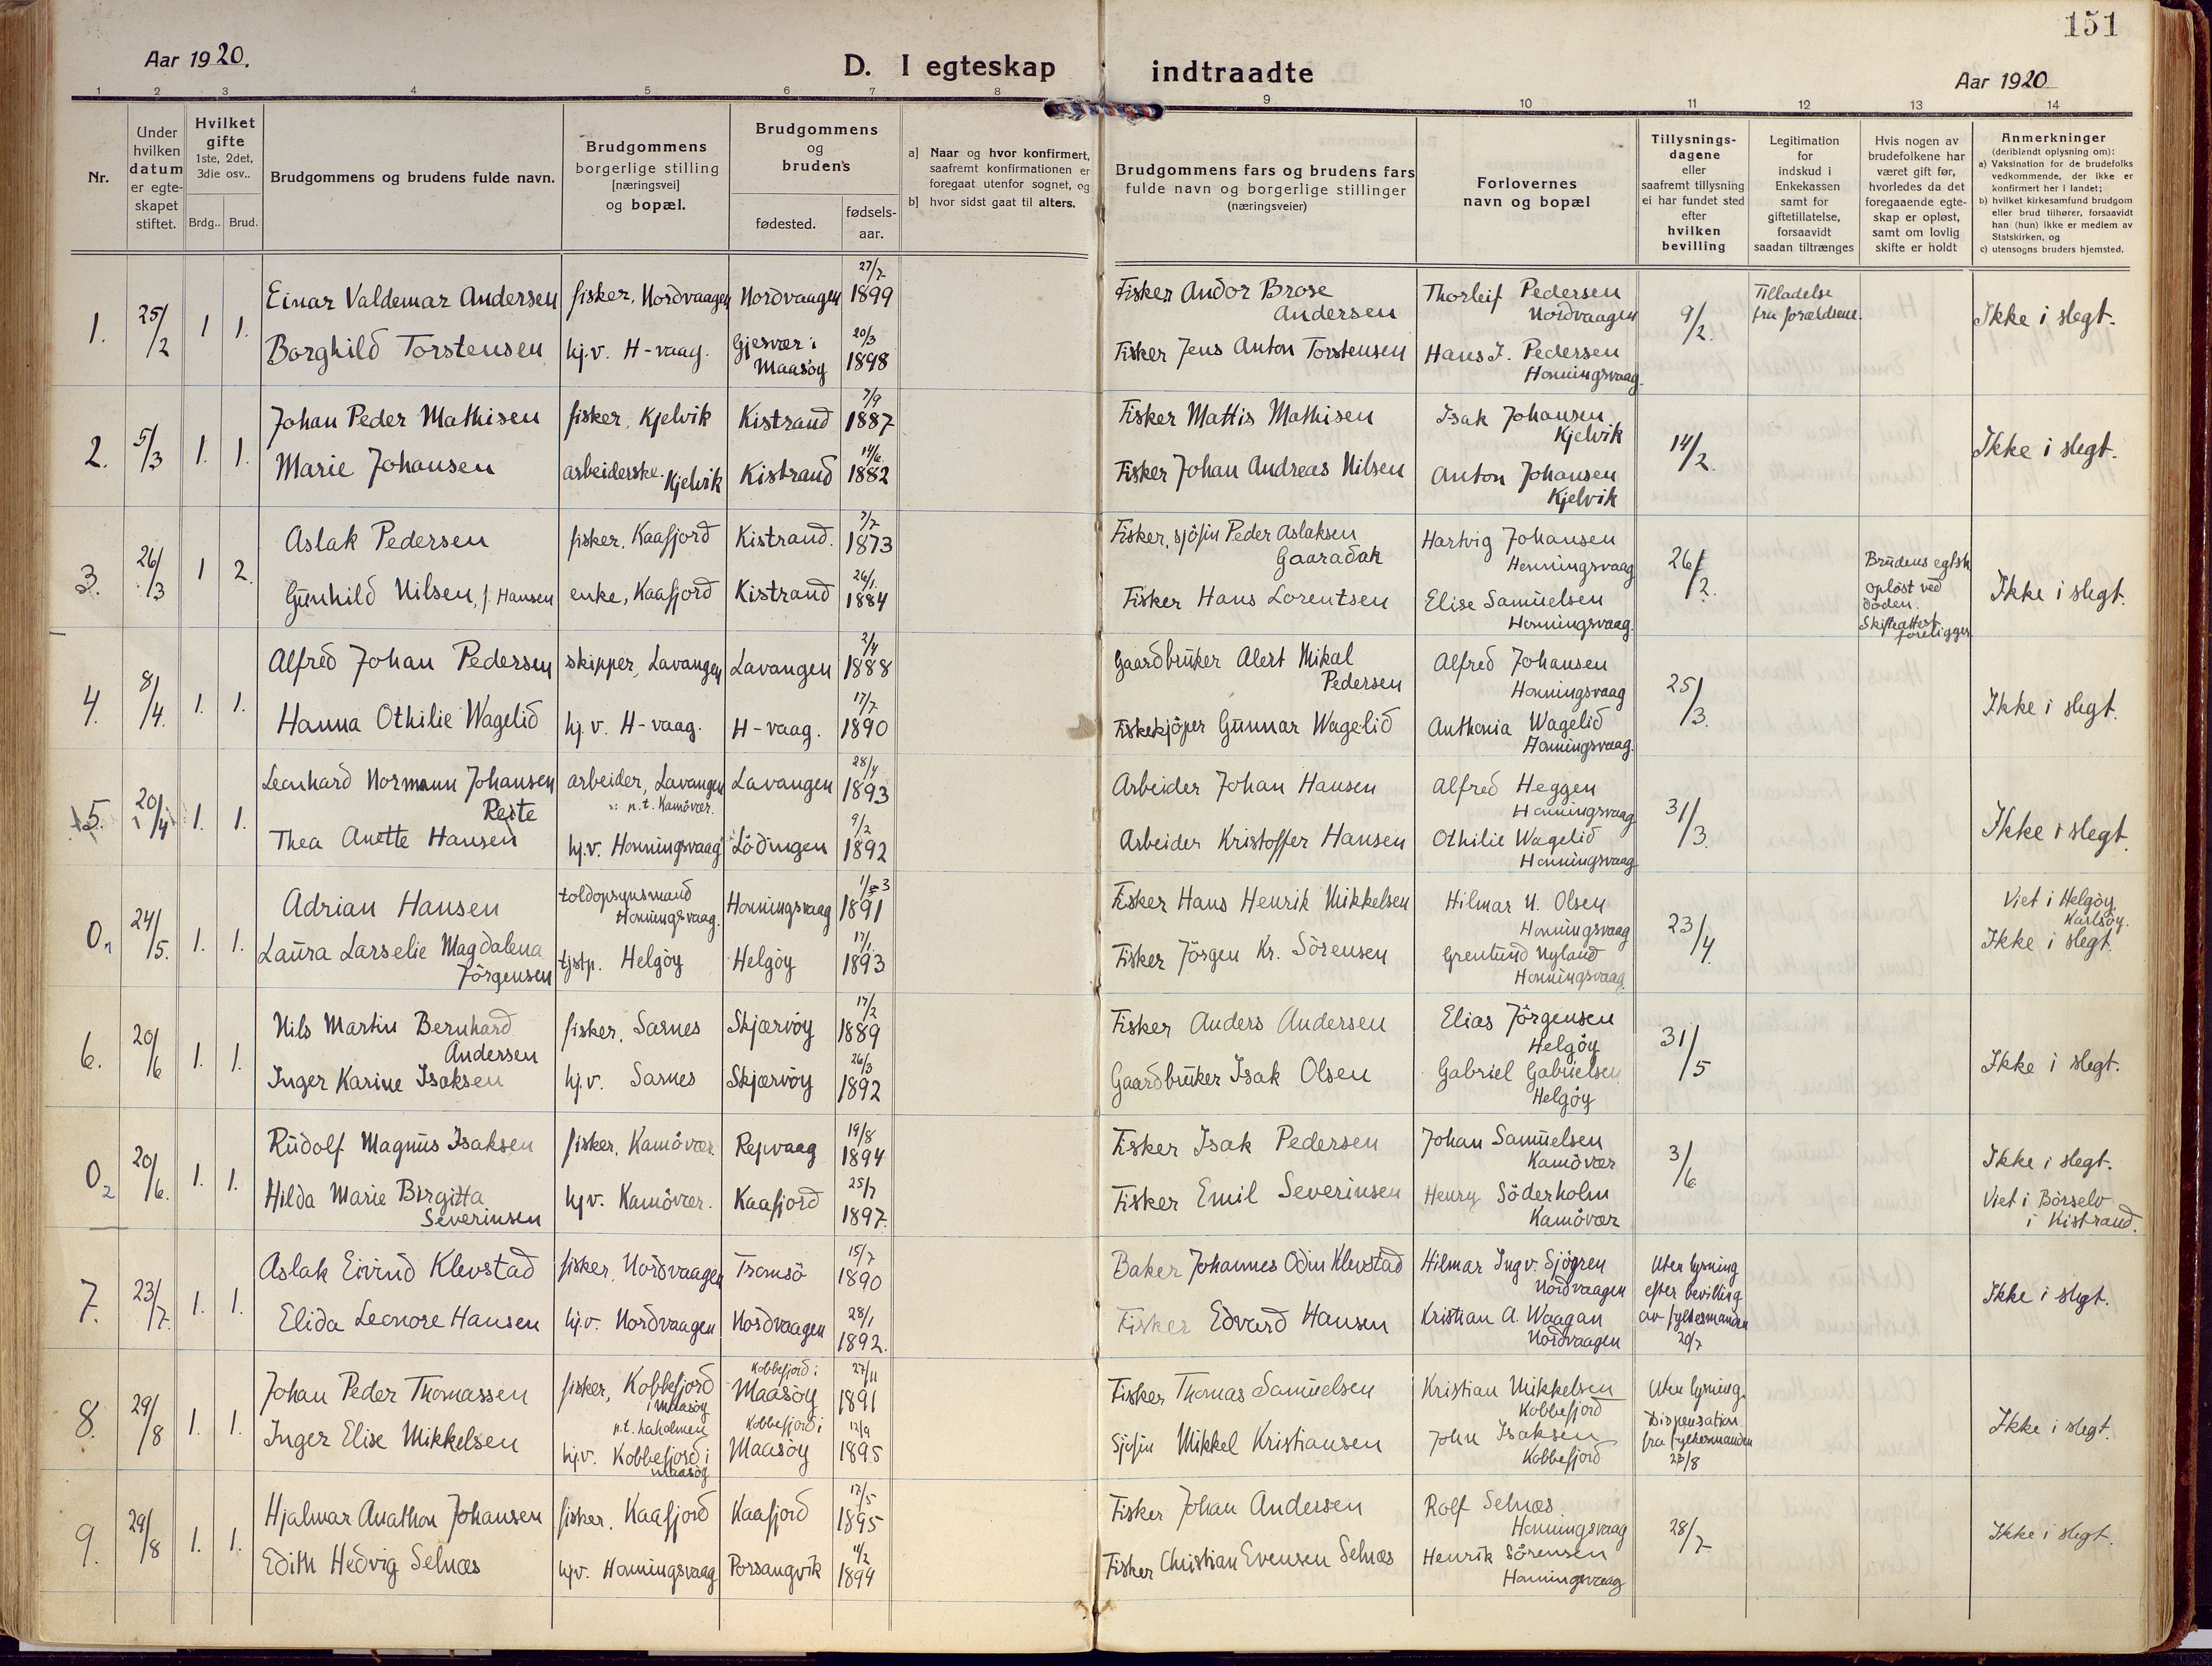 151
Aar 1920.
D. I egteskap indtraadte
Aar 1920
1 2 3 4 5 6 7 8 9 10 11 12 13 14
Nr.
Under hvilken datum er egteskapet stiftet.
Hvilket gifte 1ste, 2det, 3die osv..
Brdg.. Brud.
Brudgommens og brudens fulde navn.
Brudgommens borgerlige stilling [næringsvei] og bopæl.
Brudgommens og brudens
fødested.
fødsels-aar.
a] Naar og hvor konfirmert, saafremt konfirmationen er foregaat utenfor sognet, og
b] hvor sidst gaat til alters.
Brudgommens fars og brudens fars fulde navn og borgerlige stillinger (næringsveier)
Forlovernes navn og bopæl
Tillysnings-dagene eller saafremt tillysning ei har fundet sted efter hvilken bevilling
Legitimation for indskud i Enkekassen samt for giftetillatelse, forsaavidt saadan tiltrænges
Hvis nogen av brudefolkene har været gift før, hvorledes da det foregaaende egteskap er opløst, samt om lovlig skifte er holdt
Anmerkninger (deriblandt oplysning om):
a) Vaksination for de brudefolks vedkommende, der ikke er konfirmert her i landet;
b) hvilket kirkesamfund brudgom eller brud tilhører, forsaavidt han (hun) ikke er medlem av Statskirken, og
c) utensogns bruders hjemsted.
1. 25/2 1 1. Einar Valdemar Andersen fisker, Nordvaagen Nordvaagen 27/7 1899 Fisker Andor Brose Andersen Thorleif Pedersen Nordvaagen 9/2. Tilladelse fra forældrene. Ikke i slegt.
Borghild Torstensen hj.v. H-vaag. Gjesvær i Maasöy 20/3 1898 Fisker Jens Anton Torstensen Hans J. Pedersen Honningsvaag.
2. 5/3 1. 1. Johan Peder Mathisen fisker, Kjelvik Kistrand 7/9 1887 Fisker Mattis Mathisen Isak Johansen Kjelvik 14/2. Ikke i slegt.
Marie Johansen arbeiderske. Kjelvik Kistrand 14/6 1882 Fisker Johan Andreas Nilsen Anton Johansen Kjelvik
3. 26/3 1 2. Aslak Pedersen fisker. Kaafjord Kistrand. 7/7 1873 Fisker, sjöfin Peder Aslaksen Gaaradak Hartvig Johansen Honningsvaag 26/2. Brudens egtsk opløst ved döden. Skifteattest foreligger Ikke i slegt.
Gunhild Nilsen, f. Hansen enke, Kaafjord Kistrand 26/1. 1884 Fisker Hans Lorentsen Elise Samuelsen Honningsvaag.
4. 8/4. 1. 1. Alfred Johan Pedersen skipper, Lavangen Lavangen 2/4 1888 Gaardbruker Alert Mikal Pedersen Alfred Johansen Honningsvaag 25/3. Ikke i slegt.
Hanna Othilie Wagelid hj.v. H-vaag. H-vaag. 17/7. 1890 Fiskekjöper Gunnar Wagelid Anthonia Wagelid Honningsvaag.
5. 20/4 1. 1. Leonhard Normann Johansen Reite arbeider, Lavangen p.t. Kamövær. Lavangen 28/4 1893 Arbeider Johan Hansen Alfred Heggen Honningsvaag 31/3. Ikke i slegt.
Thea Anette Hansen hj.v. Honningsvaag Lödingen 9/2 1892 Arbeider Kristoffer Hansen Othilie Wagelid Honningsvaag
0,1 24/5. 1. 1. Adrian Hansen toldopsynsmand Honningsvaag. Honningsvaag 1891 Fisker Hans Henrik Mikkelsen Hilmar N. Olsen Honningsvaag 23/4. Viet i Helgöy, Karlsöy. Ikke i slegt.
Laura Larselie Magdalena Jörgensen tjstp. Helgöy Helgöy 17/1. 1893 Fisker Jörgen Kr. Sörensen Nyland Honningsvaag.
6. 20/6 1. 1. Nils Martin Bernhard Andersen fisker, Sarnes Skjærvöy 17/2 1889 Fisker Anders Andersen Elias Jörgensen Helgöy 31/5 Ikke i slegt.
Inger Karine Isaksen hj.v. Sarnes Skjærvöy 26/3 1892 Gaardbruker Isak Olsen Gabriel Gabrielsen Helgöy
0,2 20/6. 1. 1. Rudolf Magnus Isaksen fisker, Kamövær. Repvaag 19/8 1894 Fisker Isak Pedersen Johan Samuelsen Kamövær 3/6 Ikke i slegt.
Hilda Marie Birgitta Severinsen hjv. Kamövær. Kaafjord 25/7 1897. Fisker Emil Severinsen Henry Söderholm Kamövær Viet i Börselv i Kistrand.
7. 23/7. 1. 1. Aslak Eivind Klevstad fisker, Nordvaagen Tromsö 15/7 1890 Baker Johannes Odin Klevstad Hilmar Ingv. Sjögren Nordvaagen Uten lysning efter bevilling av fylkesmanden 20/7 Ikke i slegt.
Elida Leonore Hansen hj.v. Nordvaagen Nordvaagen 28/1 1892. Fisker Edvard Hansen Kristian A. Waagan Nordvaagen
8. 29/8 1. 1. Johan Peder Thomassen fisker, Kobbefjord i Maasöy Kobbefjord i Maasöy 27/11 1891 Fisker Thomas Samuelsen Kristian Mikkelsen Kobbefjord Uten lysning. Dispensation fra fylkesmanden 23/8 Ikke i slegt.
Inger Elise Mikkelsen hj.v. Kobbefjord i Maasöy Kobbefjord i Maasöy 12/9 1895 Sjöfin Mikkel Kristiansen John Isaksen Kobbefjord
9. 29/8 1. 1. Hjalmar Anathon Johansen fisker. Kaafjord Kaafjord 17/5 1895 Fisker Johan Andersen Rolf Selnæs Honningsvaag 28/7 Ikke i slegt.
Edith Hedvig Selnæs hjv. Honningsvaag Porsangvik 1894 Fisker Christian Evensen Selnæs Henrik Sörensen Honningsvaag